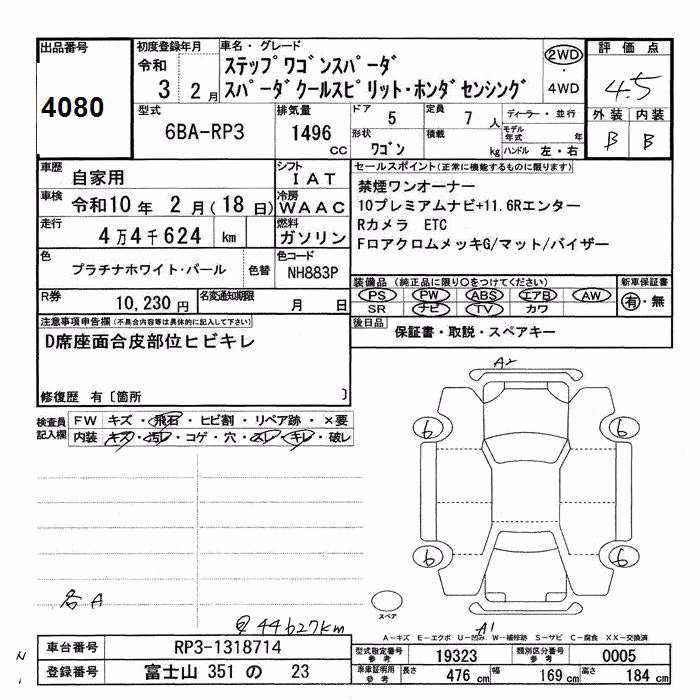 出品番号
4080
初度登録年月
令和
3 2月
車名・グレード
ステップワゴンスパーダ
スパーダクールスピリット・ホンダセンシング
2WD
・
4WD
評価点
4.5
外装 内装
B B
型式
6BA-RP3
排気量
1496
cc
ドア
5
定員
7人
形状
ワゴン
積載
kg
ディーラー・並行
モデル年式 年
ハンドル 左・右
車歴
自家用
シフト
IAT
車検
令和10年 2月(18日)
冷房
WAAC
走行
4万4千624 km
燃料
ガソリン
色
プラチナホワイト・パール
色替
色コード
NH883P
R券
10,230円
名変通知期限
月 日
セールスポイント(正常に機能するものに限ります)
禁煙ワンオーナー
10プレミアムナビ+11.6Rエンター
Rカメラ ETC
FロアクロムメッキG/マット/バイザー
装備品 (純正品に限り○をつけてください)
PS PW ABS エアB AW
SR ナビ TV カワ
新車保証書
有・無
後日品
保証書・取説・スペアキー
注意事項申告欄(不具合内容等は具体的に記入して下さい)
D席座面合皮部位ヒビキレ
修復歴 有〔箇所 〕
検査員記入欄
FW キズ・飛石・ヒビ割・リペア跡・×要
内装 キズ・汚レ・コゲ・穴・スレ・キレ・破レ
各A
44627km
A2
6
6
6
6
スペア
A1
A-キズ E-エクボ U-凹み W-補修跡 S-サビ C-腐食 XX-交換済
車台番号
RP3-1318714
登録番号
富士山 351 の 23
型式指定番号 参考
19323
類別区分番号 参考
0005
車庫証明用 参考
長さ 476 cm
幅 169 cm
高さ 184 cm